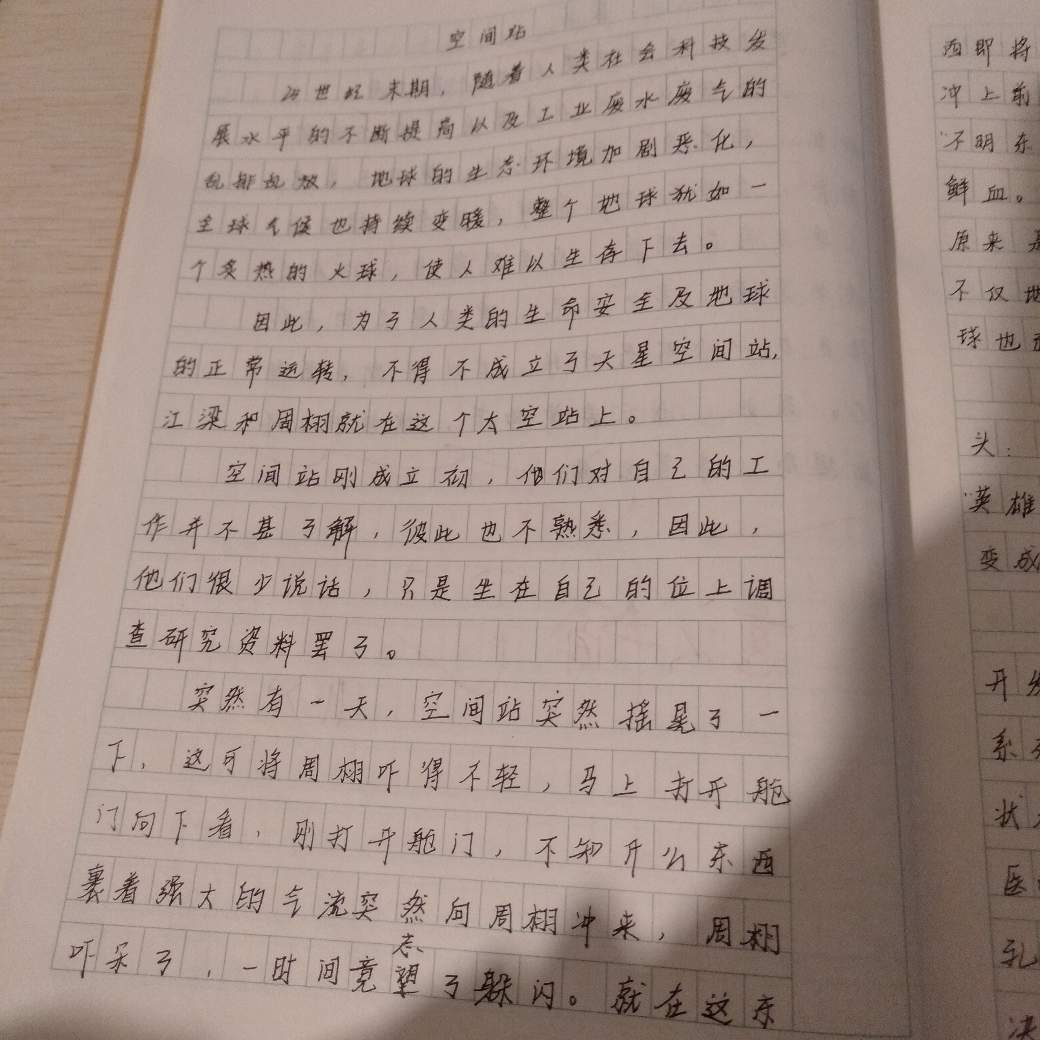 空间站
25世纪末期，随着人类社会科技发
展水平的不断提高以及工业废水废气的
乱排乱放，地球的生态环境加剧恶化，
全球气候也持续变暖，整个地球犹如一
个炙热的火球，使人难以生存下去。
因此，为了人类的生命安全及地球
的正常运转，不得不成立了天星空间站，
江梁和周栩就在这个太空站上。
空间站刚成立初，他们对自己的工
作并不甚了解，彼此也不熟悉，因此，
他们很少说话，只是坐在自己的位上调
查研究资料罢了。
突然有一天，空间站突然摇晃了一
下，这可将周栩吓得不轻，马上打开舱
门向下看，刚打开舱门，不知什么东西
裹着强大的气流突然向周栩冲来，周栩
吓呆了，一时间竟忘了躲闪。就在这东
西即将
冲上前
"不明东
鲜血。
原来是
不仅地
球也
头：
"英雄
变成
开发
系
状
医
乳
决